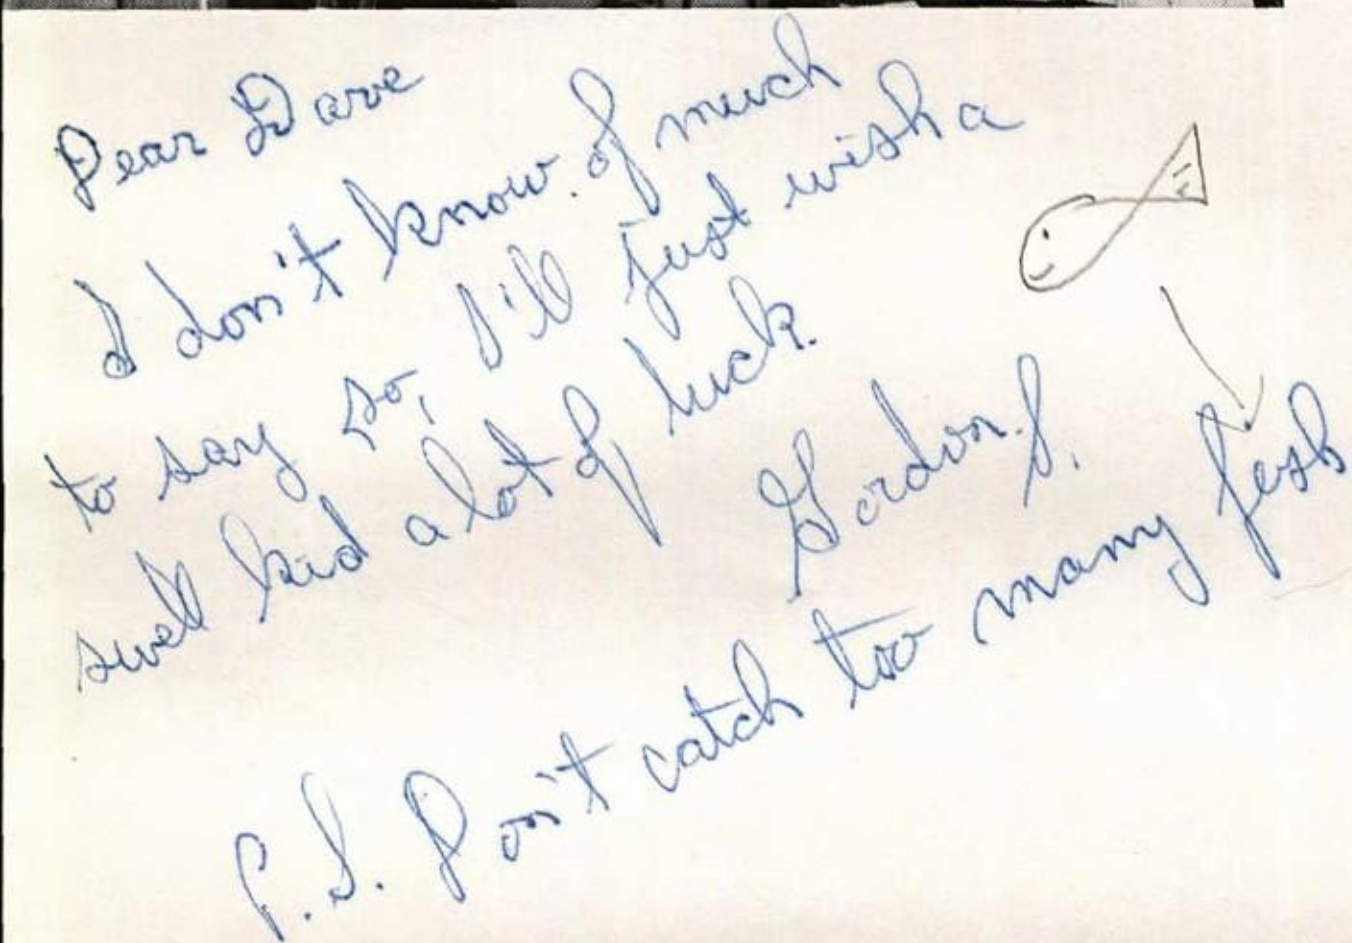 Dear Dave
I don't know of much
to say so, I'll just wish a
swell kid a lot of luck.
Gordon S.
P.S. Don't catch too many fish